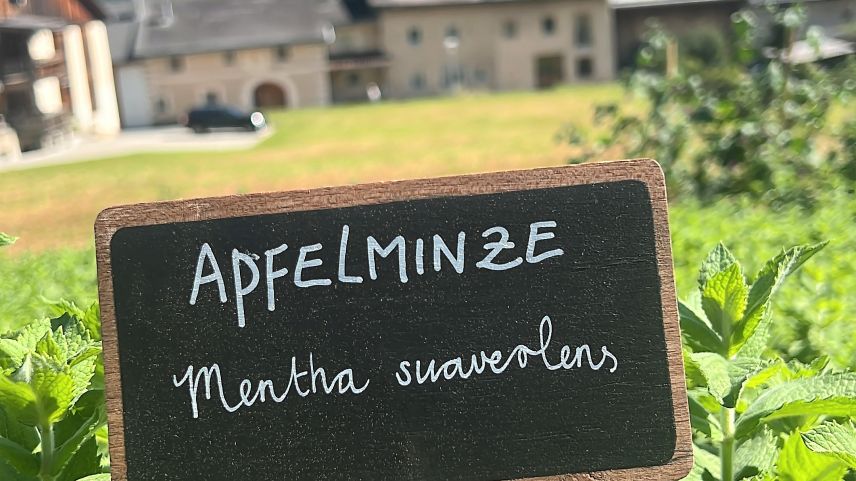 APFELMINZE
Mentha suaveolens